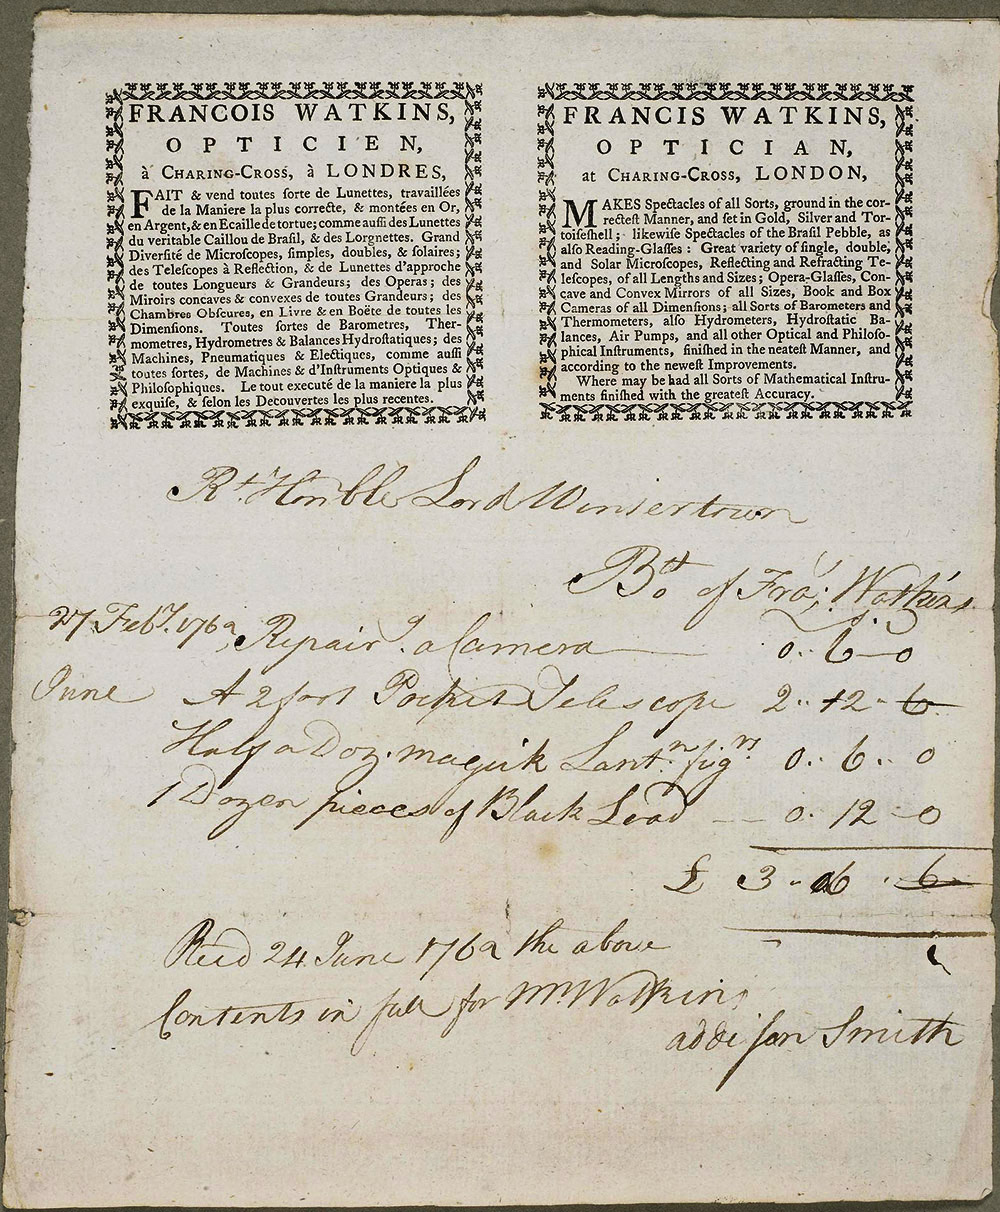 FRANCOIS WATKINS,
OPTICIEN,
à CHARING-CROSS, à LONDRES,
FAIT & vend toutes ſorte de Lunettes, travaillées
de la Maniere la plus correcte, & montées en Or,
en Argent, & en Ecaille de tortue; comme auſſi des Lunettes
du veritable Caillou de Braſil, & des Lorgnettes. Grand
Diverſité de Microſcopes, ſimples, doubles, & ſolaires;
des Teleſcopes à Reflection, & de Lunettes d'approche
de toutes Longueurs & Grandeurs; des Operas; des
Miroirs concaves & convexes de toutes Grandeurs; des
Chambres Obſcures, en Livre & en Boëte de toutes les
Dimenſions. Toutes ſortes de Barometres, Ther-
mometres, Hydrometres & Balances Hydroſtatiques; des
Machines, Pneumatiques & Electiques, comme auſſi
toutes ſortes, de Machines & d'Inſtruments Optiques &
Philoſophiques. Le tout executé de la maniere la plus
exquiſe, & ſelon les Decouvertes les plus recentes.
FRANCIS WATKINS,
OPTICIAN,
at CHARING-CROSS, LONDON,
MAKES Spectacles of all Sorts, ground in the cor-
recteſt Manner, and ſet in Gold, Silver and Tor-
toiſeſhell; likewiſe Spectacles of the Braſil Pebble, as
alſo Reading-Glaſſes: Great variety of ſingle, double,
and Solar Microſcopes, Reflecting and Refracting Te-
leſcopes, of all Lengths and Sizes; Opera-Glaſſes, Con-
cave and Convex Mirrors of all Sizes, Book and Box
Cameras of all Dimenſions; all Sorts of Barometers and
Thermometers, alſo Hydrometers, Hydroſtatic Ba-
lances, Air Pumps, and all other Optical and Philoſo-
phical Inſtruments, finiſhed in the neateſt Manner, and
according to the neweſt Improvements.
Where may be had all Sorts of Mathematical Inſtru-
ments finiſhed with the greateſt Accuracy.
Rt Honble Lord Wintertown
Bot of Fras Watkins
27 Febr. 1762 Repairg. a Camera 0.. 6 - 0
June A 2 foot Pocket Telescope 2.. 12 - 6
Half a Doz. magick Lantn. figrs 0.. 6.. 0
1 Dozen pieces of Black Lead 0. 12 - 0
£ 3 - 16 . 6
Recd 24 June 1762 the above
Contents in full for Mr Watkins
addiſon Smith